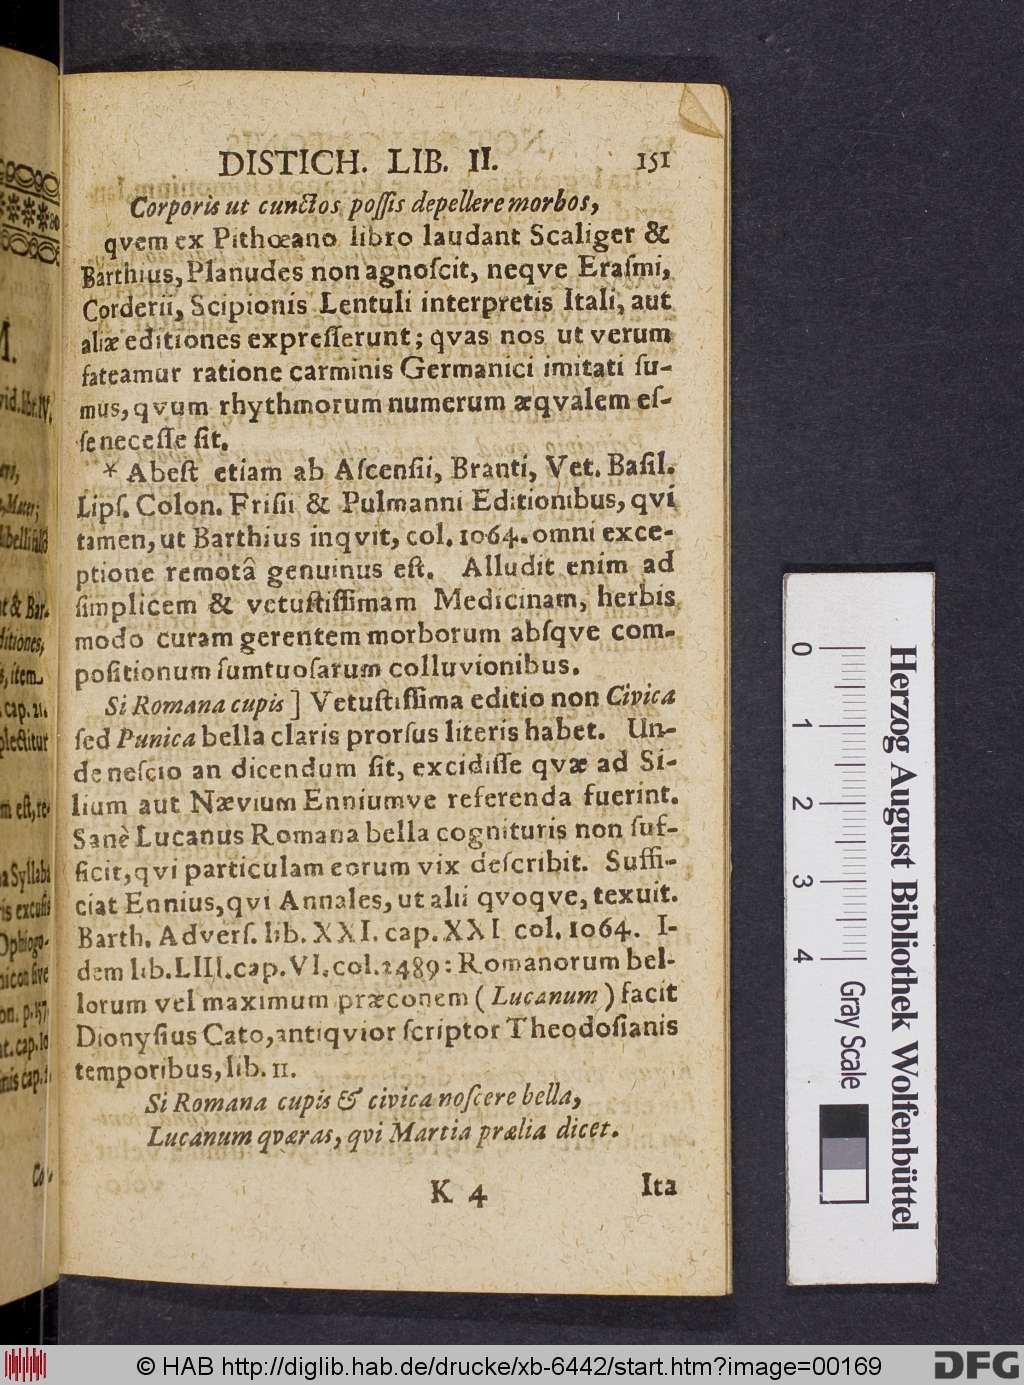 DISTICH. LIB. II. 151
Corporis ut cunctos possis depellere morbos,
qvem ex Pithœano libro laudant Scaliger &
Barthius, Planudes non agnoſcit, neqve Eraſmi,
Corderii, Scipionis Lentuli interpretis Itali, aut
aliæ editiones expreſſerunt; qvas nos ut verum
fateamur ratione carminis Germanici imitati ſu-
mus, qvum rhythmorum numerum æqvalem eſ-
ſe neceſſe ſit.
* Abeſt etiam ab Aſcenſii, Branti, Vet. Baſil.
Lipſ. Colon. Friſii & Pulmanni Editionibus, qvi
tamen, ut Barthius inqvit, col. 1064. omni exce-
ptione remotâ genuinus eſt. Alludit enim ad
ſimplicem & vetuſtiſſimam Medicinam, herbis
modo curam gerentem morborum abſqve com-
poſitionum ſumtuoſarum colluvionibus.
Si Romana cupis ] Vetuſtiſſima editio non Civica
ſed Punica bella claris prorſus literis habet. Un-
de neſcio an dicendum ſit, excidiſſe qvæ ad Si-
lium aut Nævium Enniumve referenda fuerint.
Sanè Lucanus Romana bella cognituris non ſuf-
ficit, qvi particulam eorum vix deſcribit. Suffi-
ciat Ennius, qvi Annales, ut alii qvoqve, texuit.
Barth. Adverſ. lib. XXI. cap. XXI col. 1064. I-
dem lib. LIII. cap. VI. col. 2489: Romanorum bel-
lorum vel maximum præconem ( Lucanum ) facit
Dionyſius Cato, antiqvior ſcriptor Theodoſianis
temporibus, lib. II.
Si Romana cupis & civica noſcere bella,
Lucanum qværas, qvi Martia prælia dicet.
K 4 Ita
M.
vid. libr. IV.
Mater;
libelli
t & Bar.
ditiones,
s, item
cap. 21.
plectitur
m eſt, re-
a Syllaba
is excuſis
Ophiogo-
nicon ſive
on. p. 157
cap. 10
Co-
0 1 2 3 4
Gray Scale
Herzog August Bibliothek Wolfenbüttel
© HAB http://diglib.hab.de/drucke/xb-6442/start.htm?image=00169
DFG